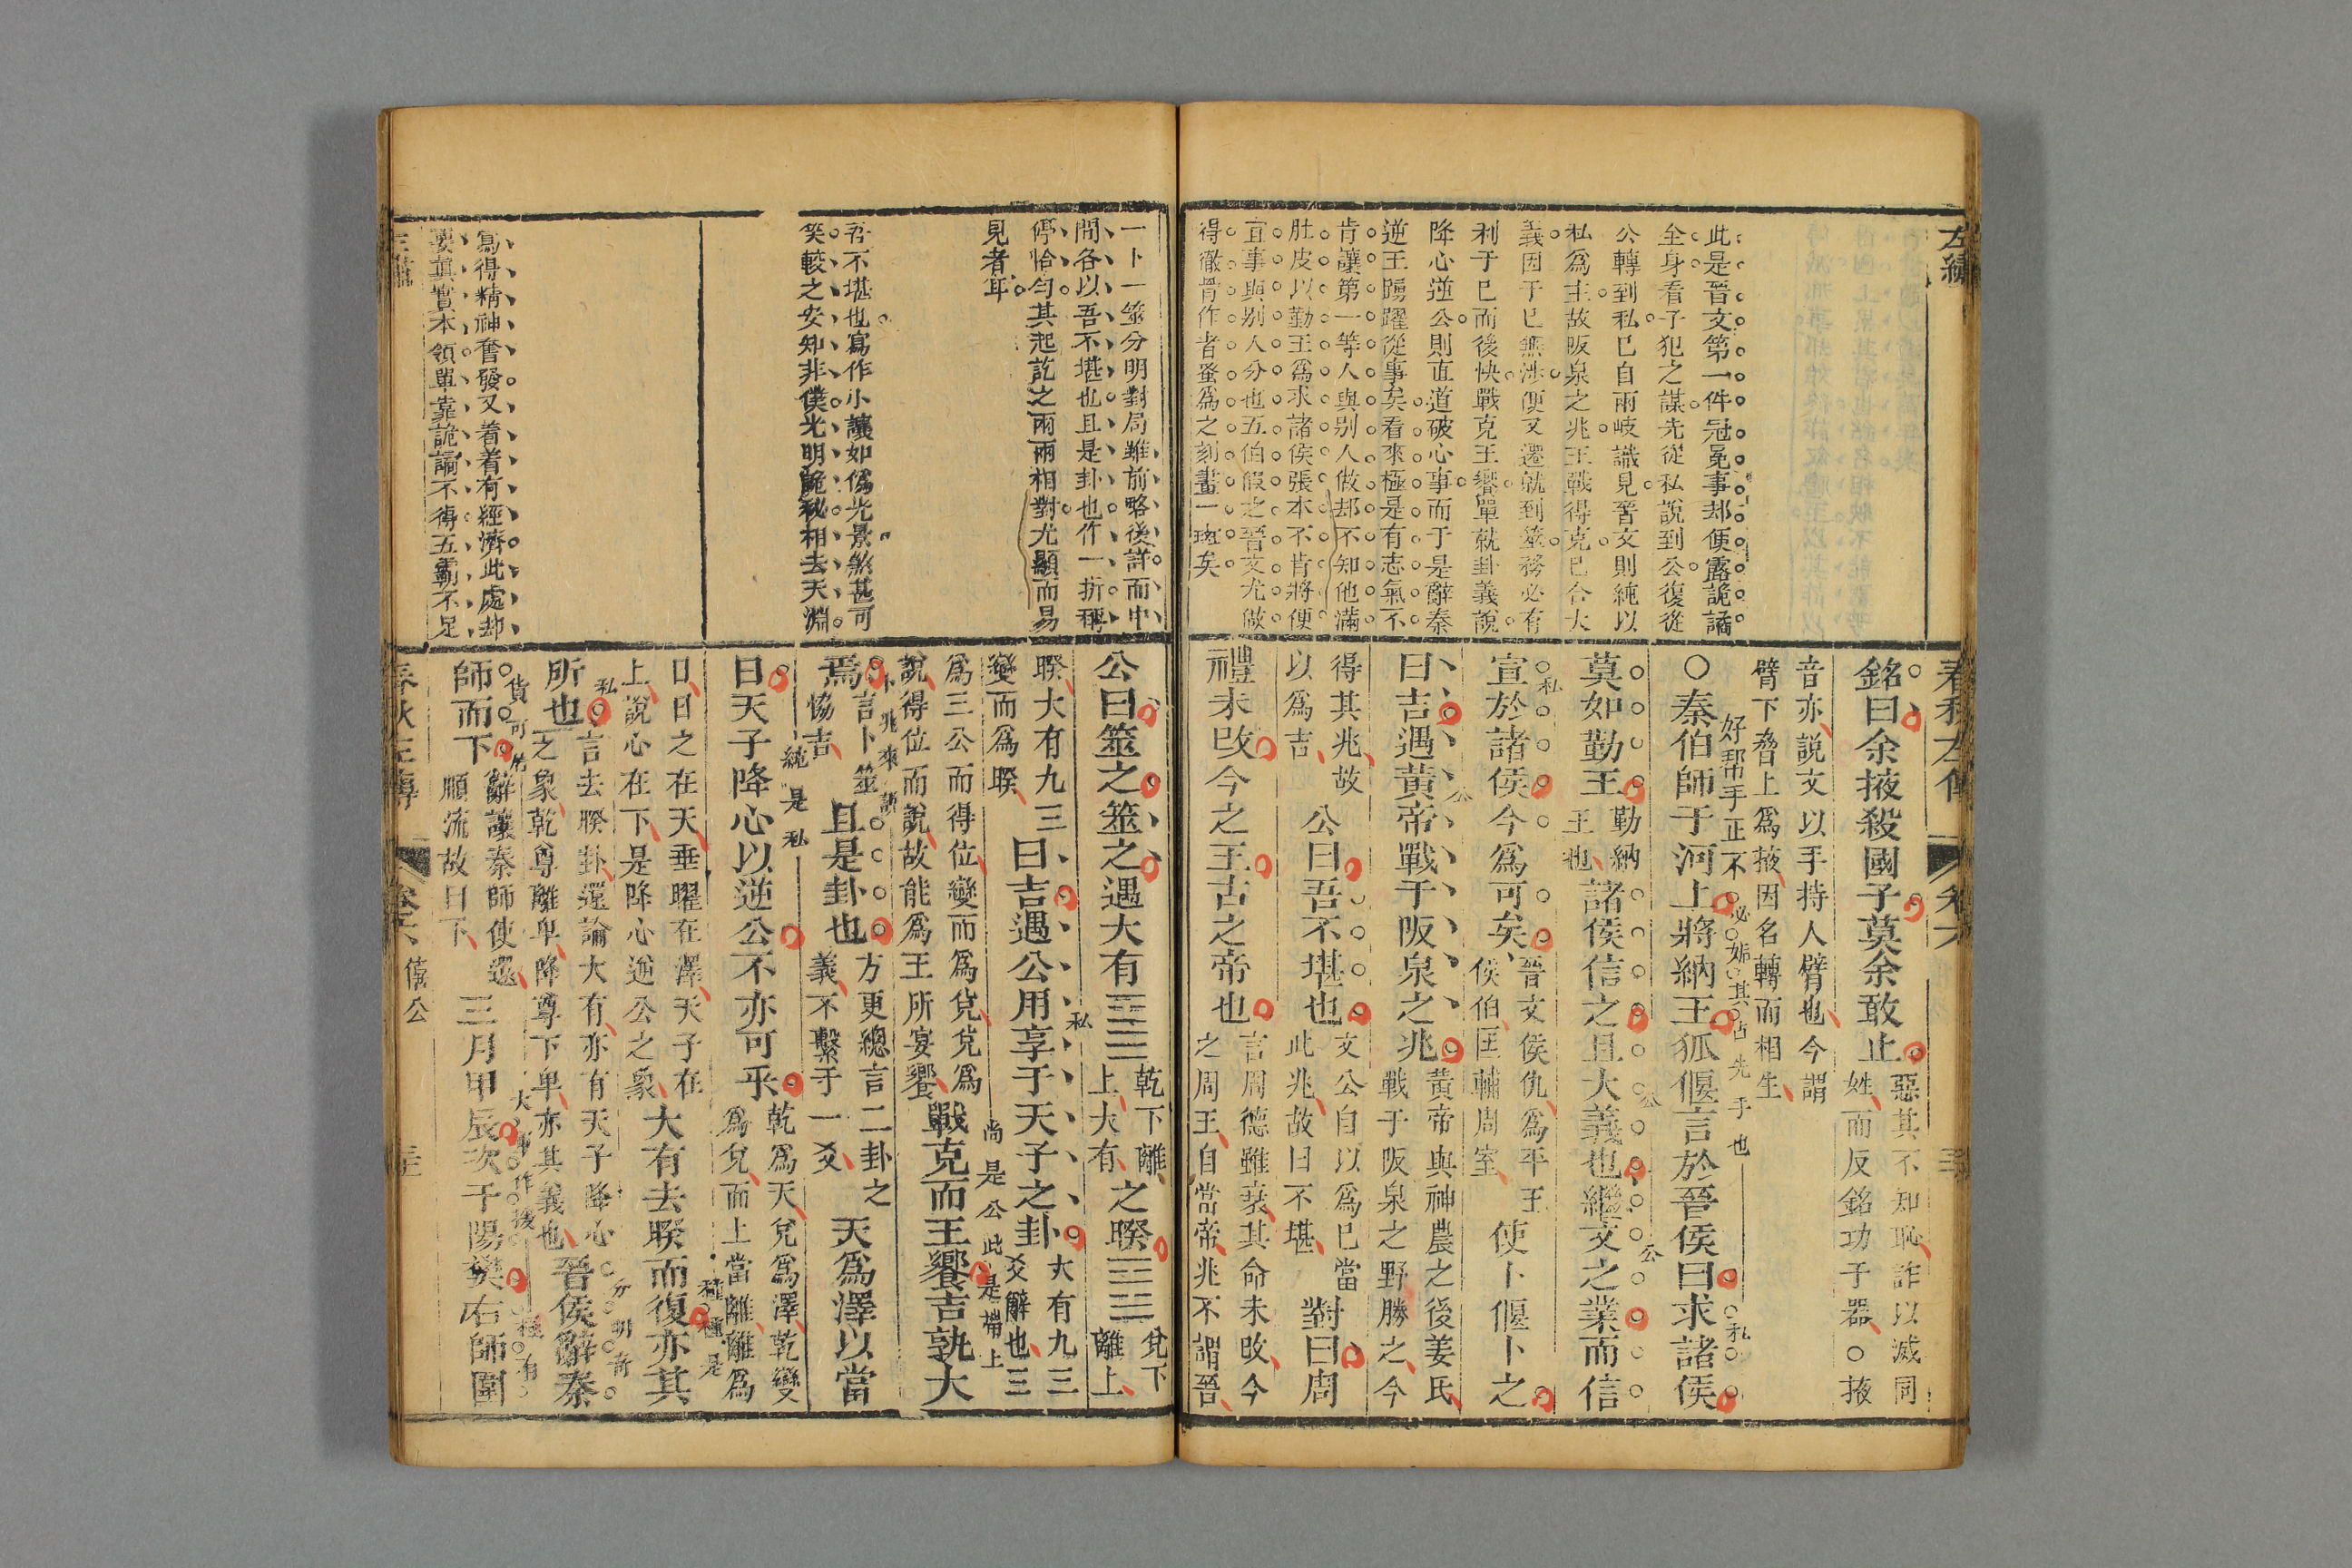 左繡
此是晉文第一件冠冕事却便露詭譎
全身看子犯之謀先從私說到公復從
公轉到私已自兩岐識見晉文則純以
私為主故阪泉之兆王戰得克已合大
義因于已無涉便又遷就到筮務必有
利于已而後快戰克王饗單就卦義說
降心逆公則直道破心事而于是辭秦
逆王踴躍從事矣看來極是有志氣不
肯讓第一等人與别人做却不知他滿
肚皮以勤王為求諸侯張本不肯將便
宜事與别人分也五伯假之晉文尤做
得徹骨作者蚤為之刻畫一斑矣
春秋左傳
卷六
銘曰余掖殺國子莫余敢止
惡其不知恥詐以滅同
姓而反銘功于器○掖
音亦說文以手持人臂也今謂
臂下脅上為掖因名轉而相生
好幇手正不必妬其占先手也
○秦伯師于河上將納王狐偃言於晉侯曰求諸侯
私
莫如勤王
勤納
王也
諸侯信之且大義也繼文之業而信
公
公
宣於諸侯今為可矣
私
晉文侯仇為平王
侯伯匡輔周室
使卜偃卜之
曰吉遇黃帝戰于阪泉之兆
公
黃帝與神農之後姜氏
戰于阪泉之野勝之今
得其兆故
以為吉
公曰吾不堪也
文公自以為已當
此兆故曰不堪
對曰周
禮未改今之王古之帝也
言周德雖衰其命未改今
之周王自當帝兆不謂晉
一卜一筮分明對局雖前略後詳而中
間各以吾不堪也且是卦也作一折稱
停恰勻其起訖之兩兩相對尤顯而易
見者耳
吾不堪也寫作小讓如僞光景煞甚可
笑較之安知非僕光明詭秘相去天淵
寫得精神奮發又着着有經濟此處却
要真實本領單靠詭譎不得五霸不足
公曰筮之筮之遇大有☰☲
乾下離
上大有
之睽☱☲
兌下
離上
睽大有九三
變而為睽
曰吉遇公用享于天子之卦
私
大有九三
爻辭也三
為三公而得位變而為兌兌為
說得位而說故能為王所宴饗
尚是公此是帶上
戰克而王饗吉孰大
焉
卜兆來講
言卜筮
恊吉
且是卦也
方更總言二卦之
義不繫于一爻
天為澤以當
純是私
日天子降心以逆公不亦可乎
乾為天兌為澤乾變
為兌而上當離離為
日日之在天垂曜在澤天子在
上說心在下是降心逆公之象
種種是
大有去睽而復亦其
私
所也
言去睽卦還論大有亦有天子降心
之象乾尊離卑降尊下卑亦其義也
晉侯辭秦
貨可居
師而下
辭讓秦師使還
順流故曰下
三月甲辰次于陽樊右師圍
春秋左傳
卷六
僖公